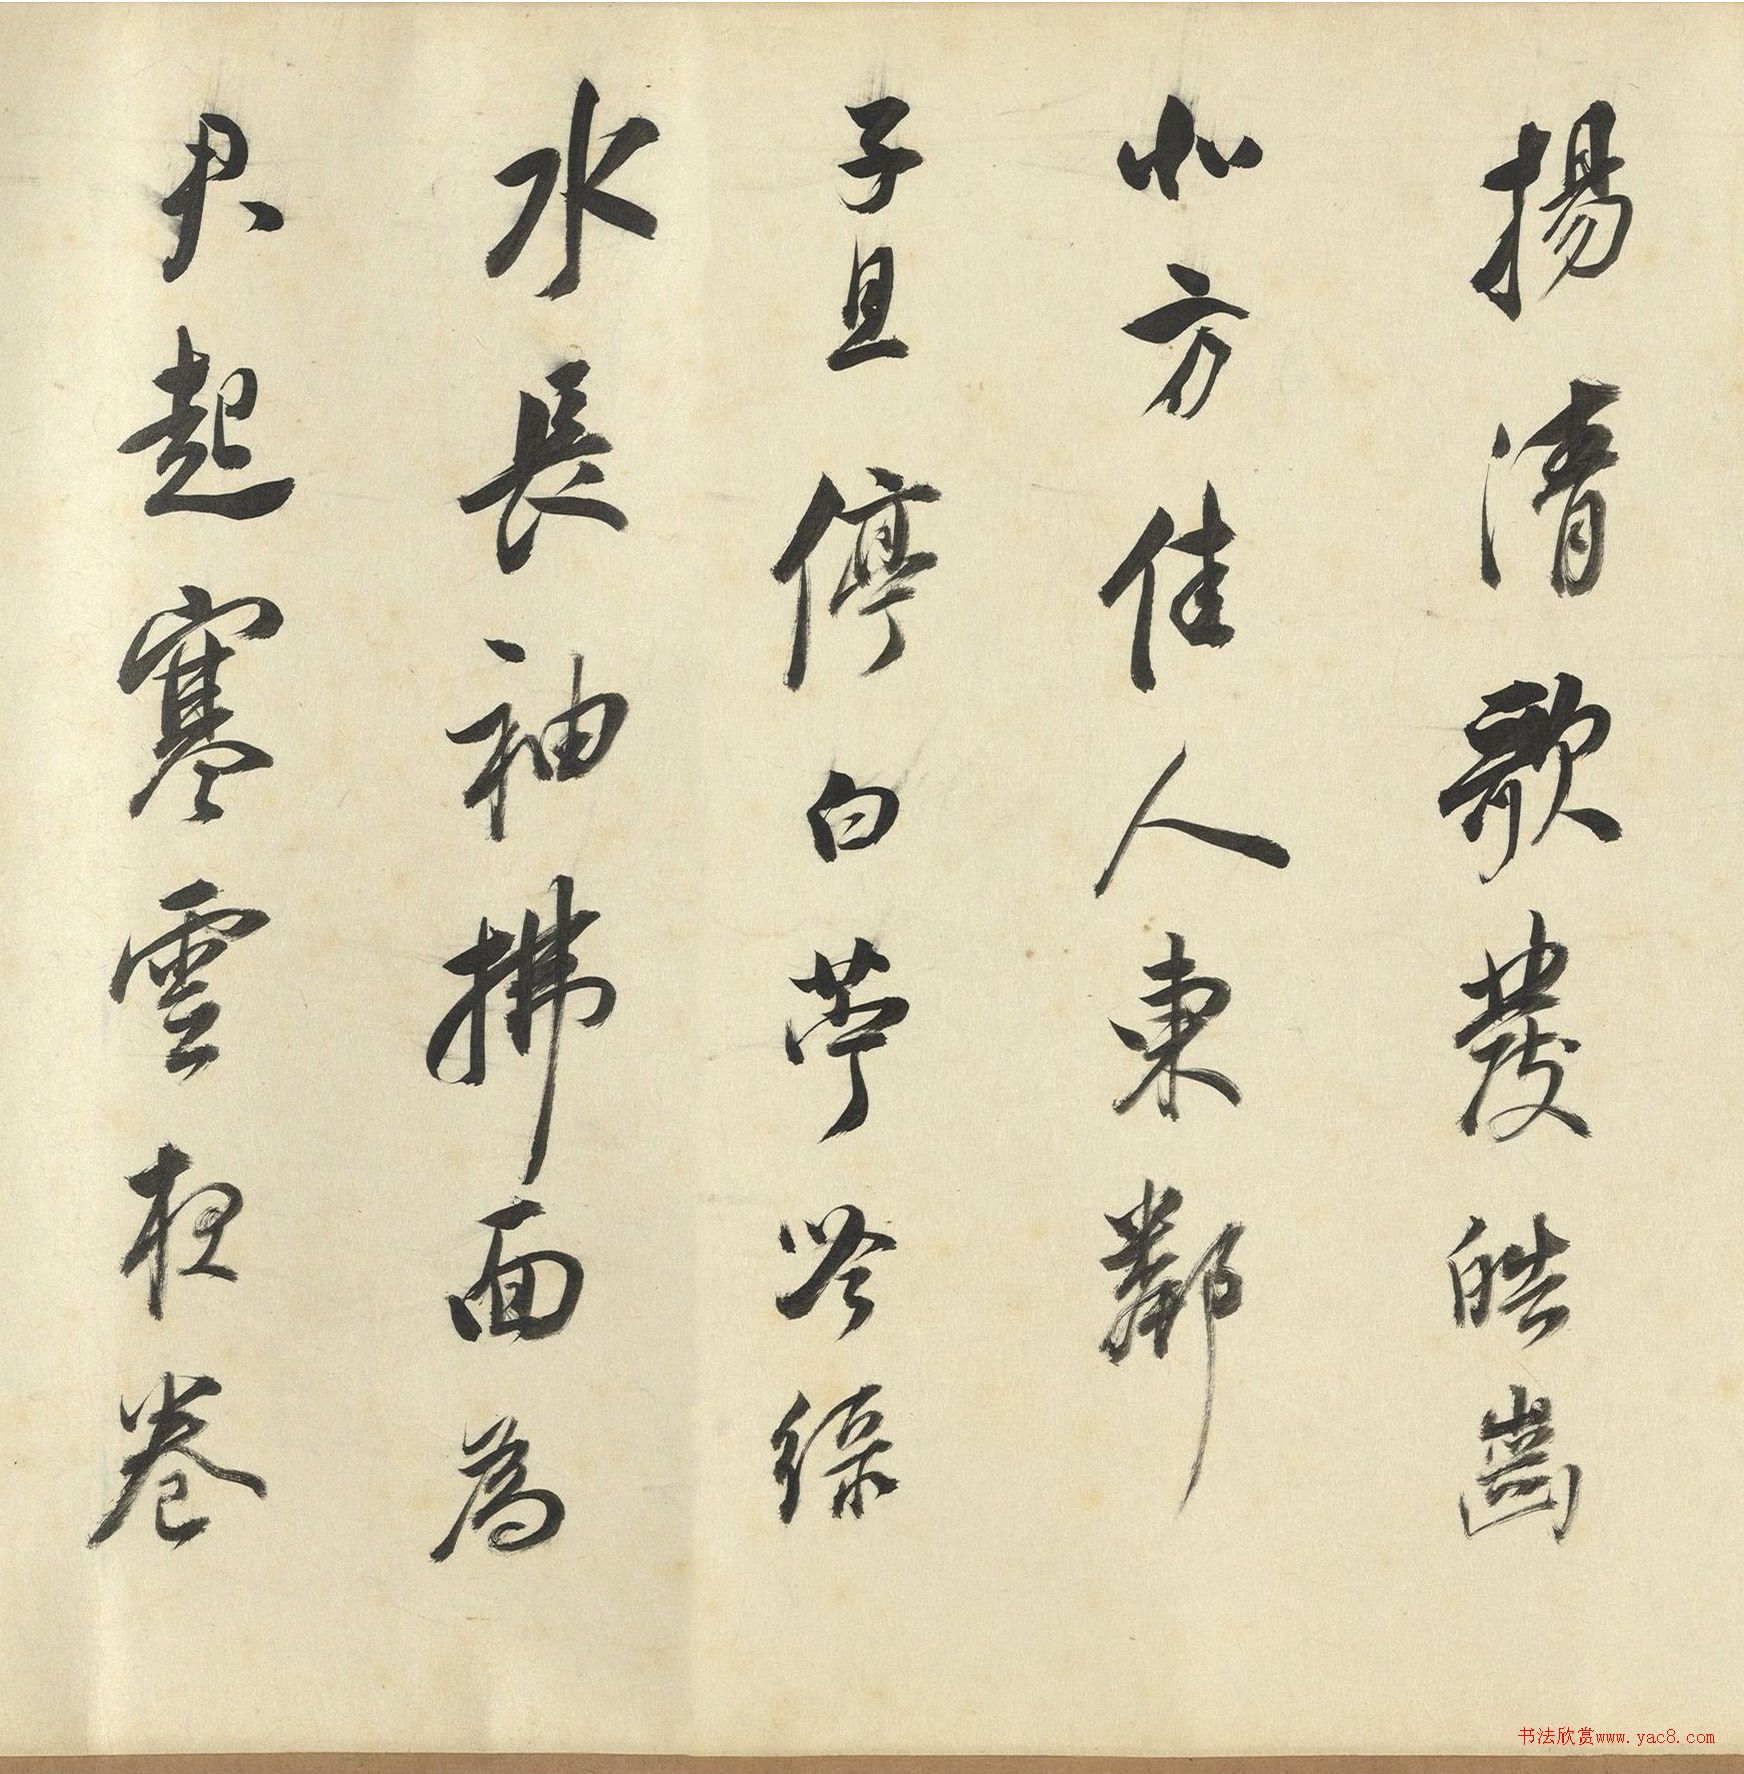 揚清歌發皓齒
北方佳人東鄰
子且停白苧吟綠
水長袖拂面為
君起寒雲夜卷
书法欣赏www.yac8.com